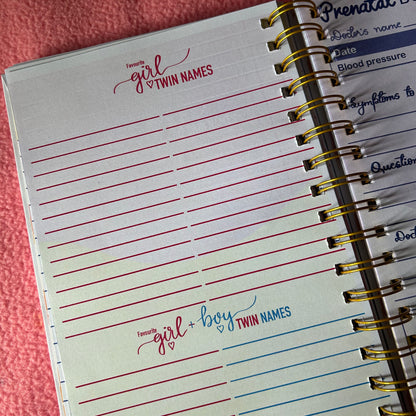 Favourite
girl
TWIN NAMES
Favourite
girl + boy
TWIN NAMES
Prenatal
Doctor's name
Date
Blood pressure
Symptoms to
Question